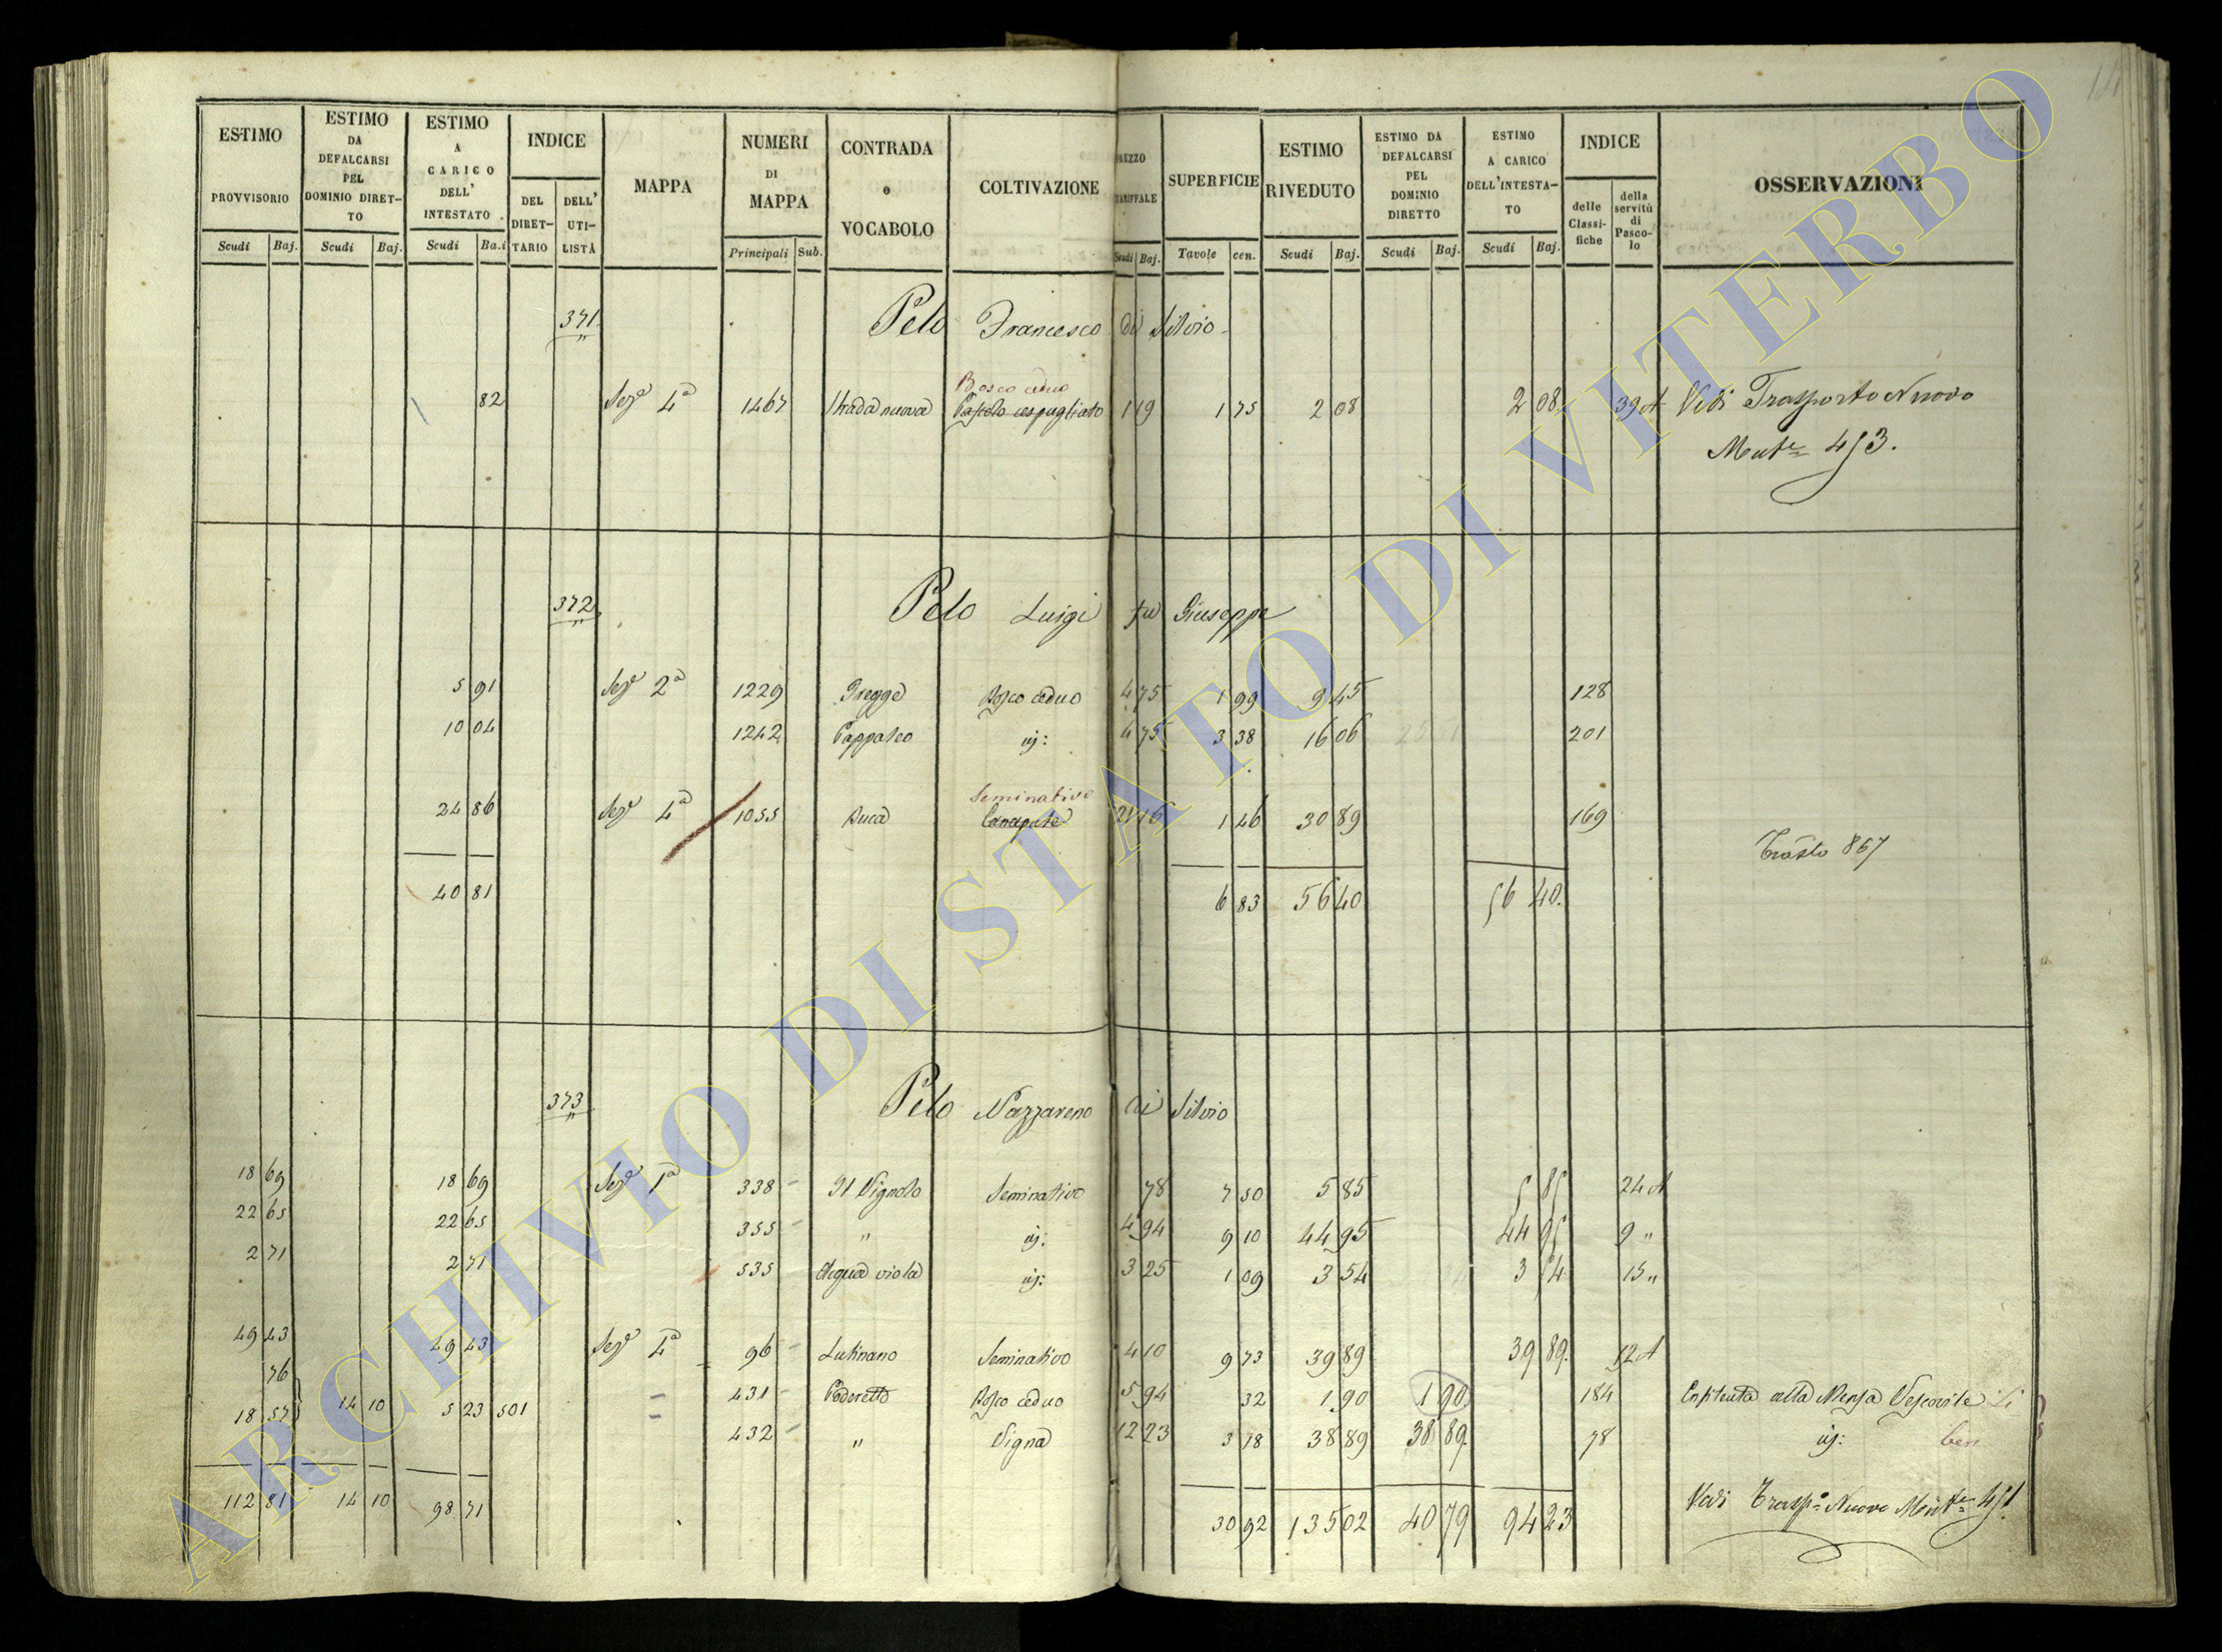 14
ESTIMO PROVVISORIO Scudi Baj.
ESTIMO DA DEFALCARSI PEL DOMINIO DIRET-TO Scudi Baj.
ESTIMO A CARICO DELL' INTESTATO Scudi Ba.i
INDICE DEL DIRET-TARIO DELL' UTI-LISTA
MAPPA
NUMERI DI MAPPA Principali Sub.
CONTRADA o VOCABOLO
COLTIVAZIONE
PREZZO TARIFFALE Scudi Baj.
SUPERFICIE Tavole cen.
ESTIMO RIVEDUTO Scudi Baj.
ESTIMO DA DEFALCARSI PEL DOMINIO DIRETTO Scudi Baj.
ESTIMO A CARICO DELL'INTESTA-TO Scudi Baj.
INDICE delle Classi-fiche della servitù di Pasco-lo
OSSERVAZIONI
371 Pelo Francesco di Silvio
Bosco ceduo
82 Sez.e 4a 1467 Strada nuova Pascolo cespugliato 1 19 1 75 2 08 2 08 39 A Vedi Trasporto Nuovo
Mente 453.
372 Pelo Luigi fu Giuseppe
5 91 Sez.e 2a 1229 Bosco ceduo 4 75 1 99 9 45 128
10 04 1242 Pappaleo id: 4 75 3 38 16 06 201
Seminativo
24 86 Sez.e 4a 1055 Buca Canapule 21 16 1 46 30 89 169
Trasto 867
40 81 6 83 56 40 56 40
373 Pelo Nazzareno di Silvio
18 69 18 69 Sez.e 1a 338 Il Vignolo Seminativo 78 7 50 5 85 5 85 24 A
22 65 22 65 355 " id: 4 94 9 10 44 95 44 95 9 "
2 71 2 71 535 Acqua viola id: 3 25 1 09 3 54 3 54 15 "
49 43 49 43 Sez.e 4a 96 Lutinano Seminativo 4 10 9 73 39 89 39 89 12 A
76 431 Poderetto Bosco ceduo 5 94 32 1 90 1 90 184 Enfiteuta alla Mensa Vescovile Li
18 57 14 10 5 23 501 432 " Vigna 12 23 3 18 38 89 38 89 78 id: ben
112 81 14 10 98 71 30 92 135 02 40 79 94 23 Vedi Trasp.o Nuovo Mente 451
ARCHIVIO DI STATO DI VITERBO